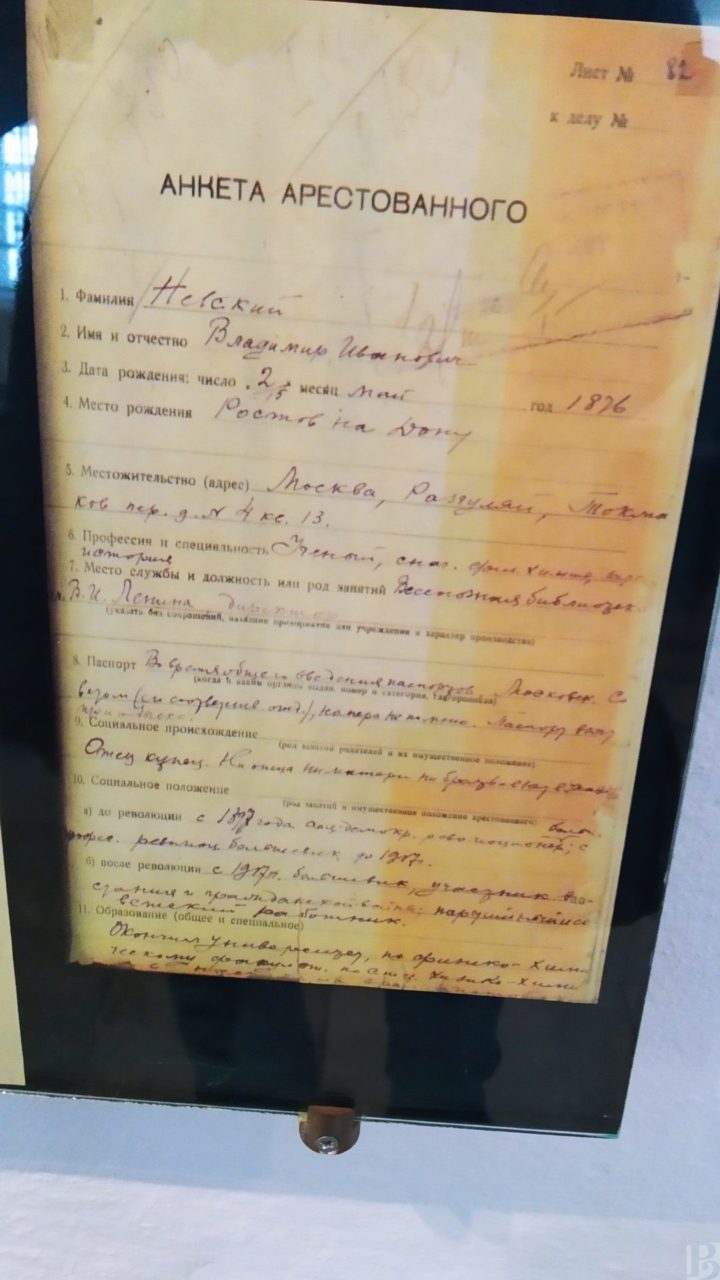 Лист № 82
к делу №
АНКЕТА АРЕСТОВАННОГО
1. Фамилия Невский
2. Имя и отчество Владимир Иванович
3. Дата рождения: число 2/15 месяц май год 1876
4. Место рождения Ростов на Дону
5. Местожительство (адрес) Москва, Разгуляй, Токма
ков пер. д. № 4 кв. 13.
6. Профессия и специальность Ученый,
история
7. Место службы и должность или род занятий Всесоюзная библиотек
В. И. Ленина директор
(указать без сокращений, название предприятия или учреждения и характер производства)
8. Паспорт Во время общего введения паспортов Московск.
(когда и каким органом выдан, номер и категория, где прописан)
номера не помню. Паспорт
при обыске.
9. Социальное происхождение
(род занятий родителей и их имущественное положение)
Отец купец. Ни отца ни матери ни братьев
10. Социальное положение
(род занятий и имущественное положение арестованного)
а) до революции с 1897 года соц. демокр. революционер; с
революц большевик до 1917г.
б) после революции с 1917г. большевик, участник вос
стания и гражданской войны;
ветский работник.
11. Образование (общее и специальное)
Окончил университет, по физико-хими
ческому факульт. по спец. физико-хими